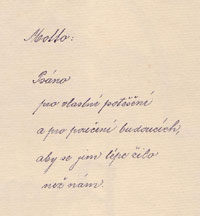 Motto:
Psáno
pro vlastní potěšení
a pro poučení budoucích,
aby se jim lépe žilo
než nám.